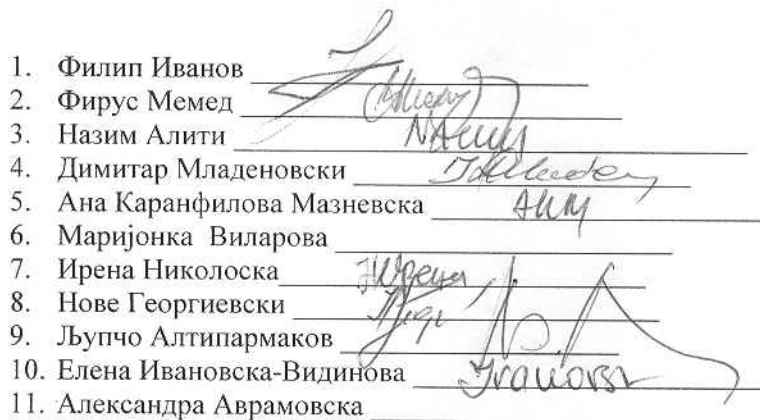 1. Филип Иванов
2. Фирус Мемед
3. Назим Алити
4. Димитар Младеновски
5. Ана Каранфилова Мазневска АКМ
6. Маријонка Виларова
7. Ирена Николоска
8. Нове Георгиевски
9. Љупчо Алтипармаков
10. Елена Ивановска-Видинова
11. Александра Аврамовска